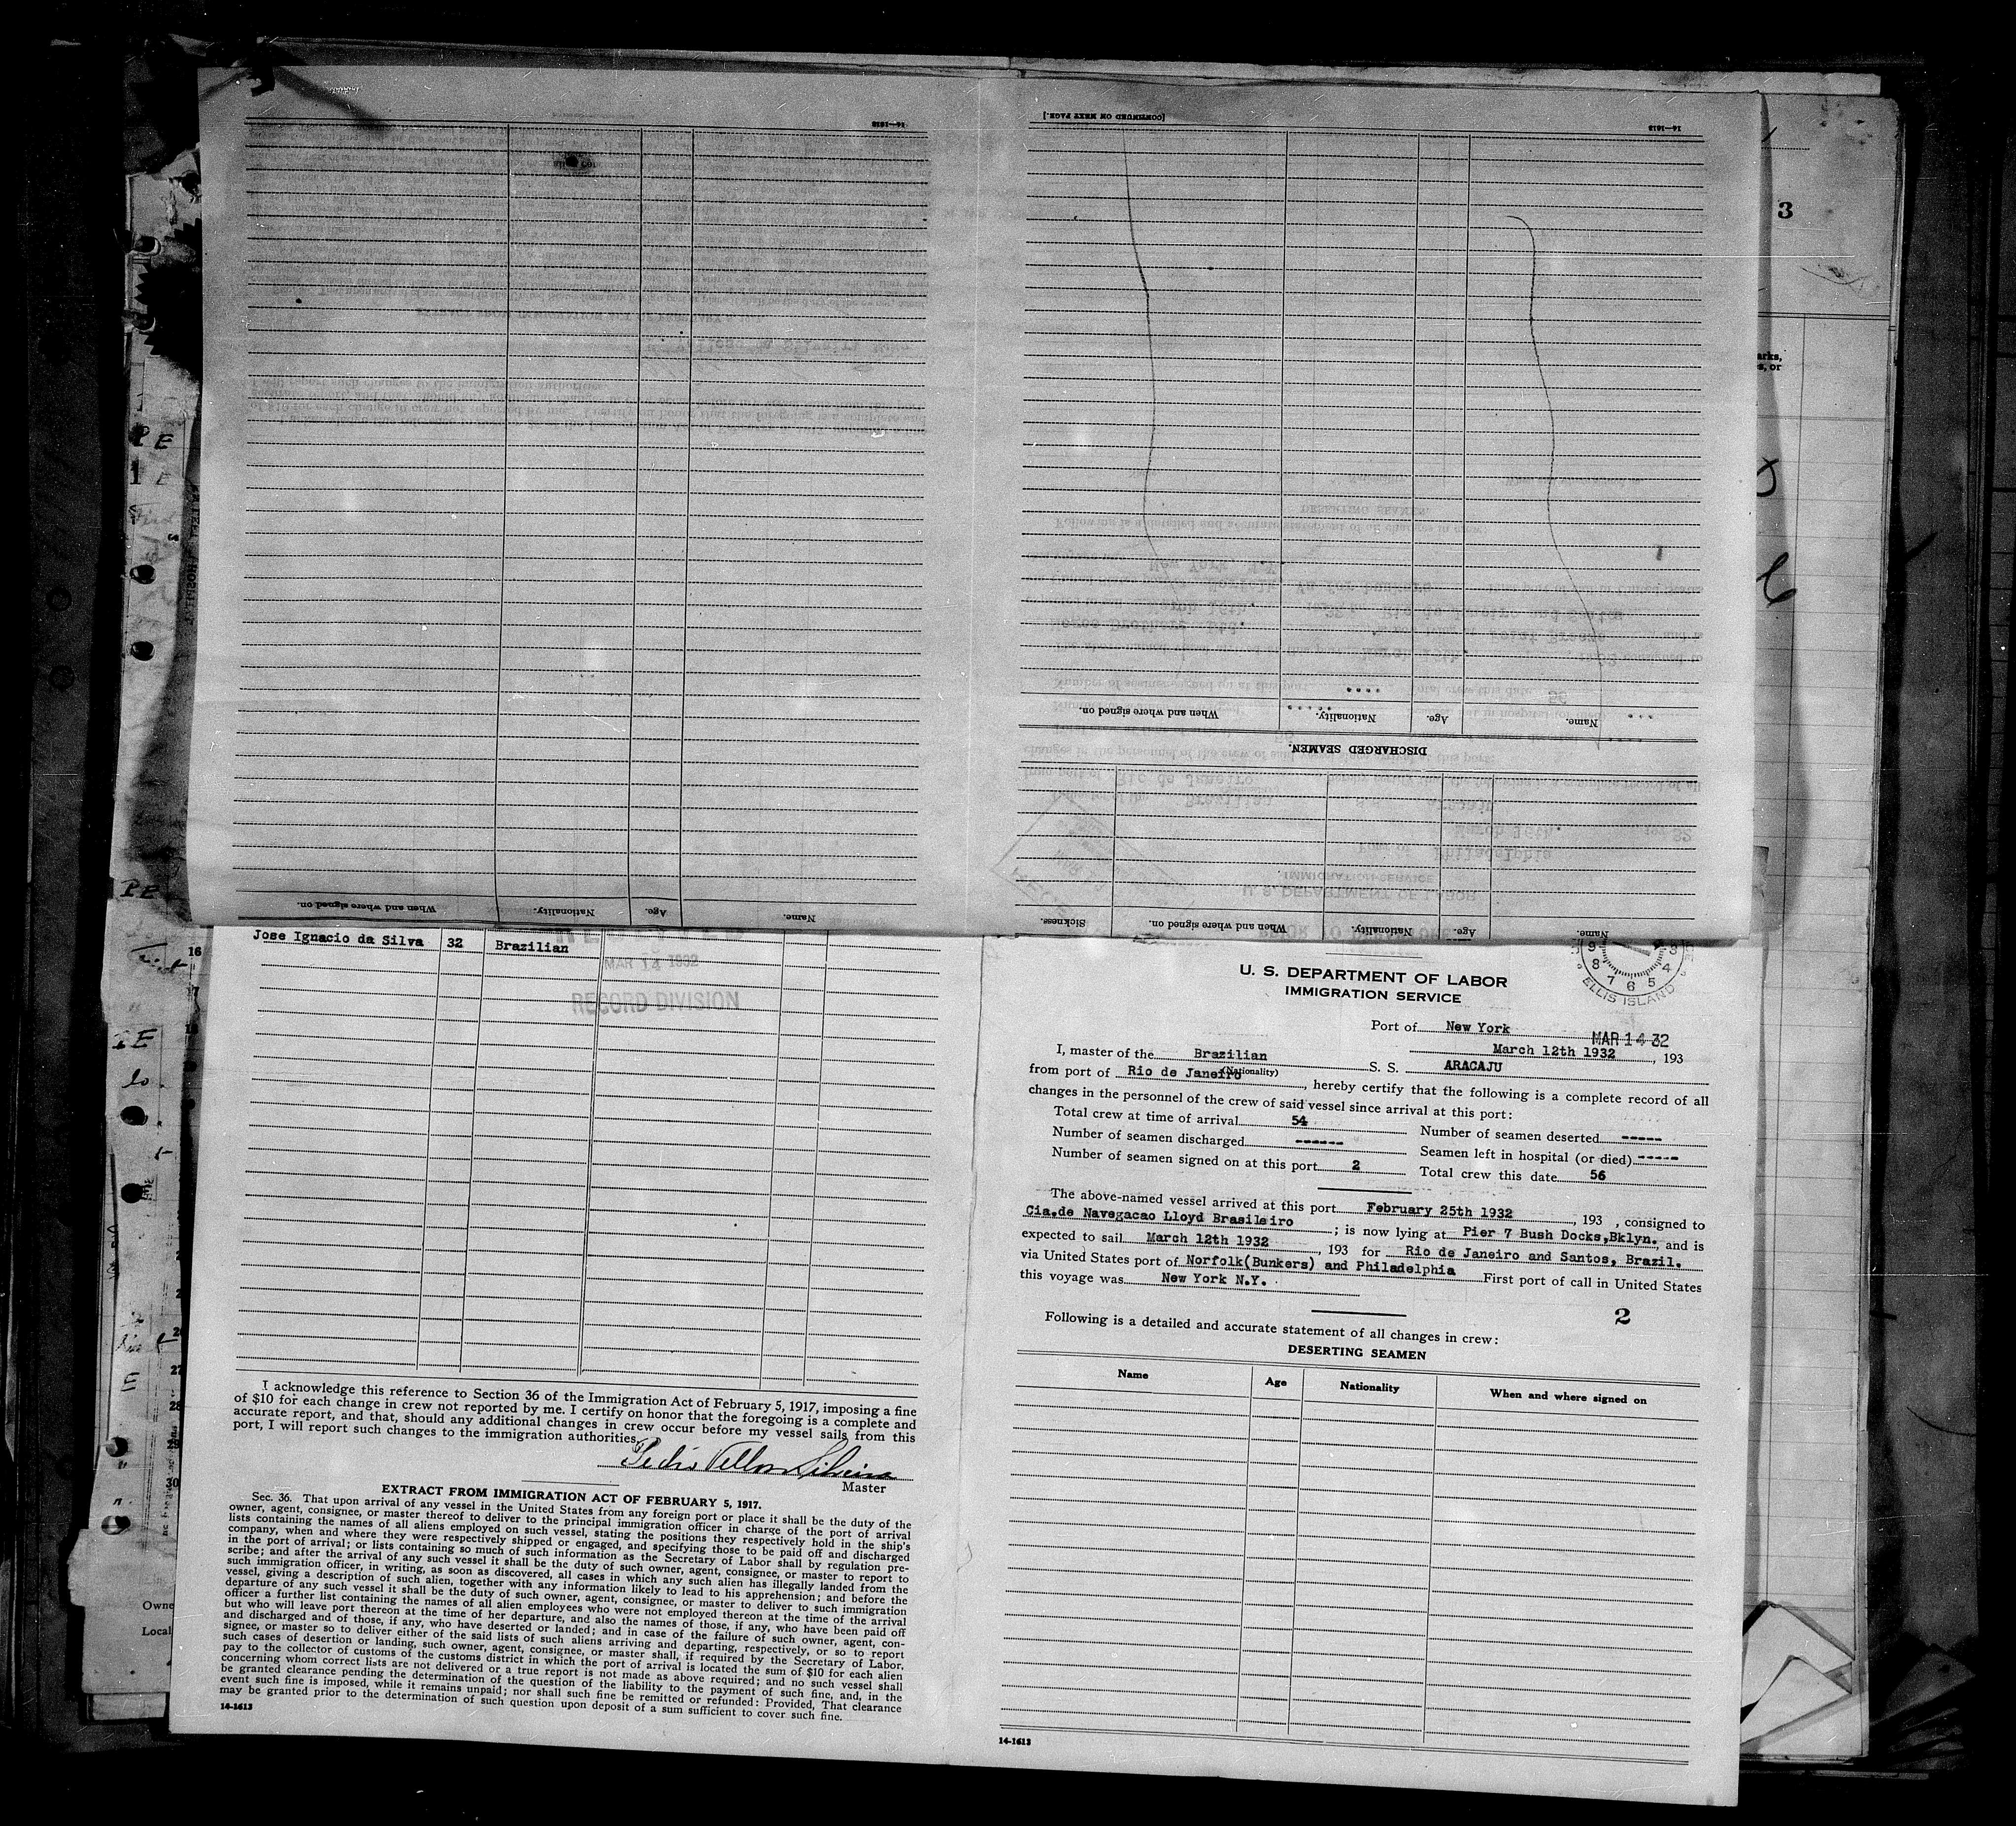 14—1613
[CONTINUED ON NEXT PAGE.]
14—1613
When and where signed on.
Nationality.
Age.
Name.
DISCHARGED SEAMEN.
Sickness.
When and where signed on.
Nationality.
Age.
Name.
When and where signed on.
Nationality.
Age.
Name.
3
arks,
s, or
PE
1 E
PE
16
17
27
28
29
30
Owne
Local
Jose Ignacio da Silva 32 Brazilian
MAR 14 1932
RECORD DIVISION
I acknowledge this reference to Section 36 of the Immigration Act of February 5, 1917, imposing a fine
of $10 for each change in crew not reported by me. I certify on honor that the foregoing is a complete and
accurate report, and that, should any additional changes in crew occur before my vessel sails from this
port, I will report such changes to the immigration authorities.
Pedro Velloso Silveira
Master
EXTRACT FROM IMMIGRATION ACT OF FEBRUARY 5, 1917.
Sec. 36. That upon arrival of any vessel in the United States from any foreign port or place it shall be the duty of the
owner, agent, consignee, or master thereof to deliver to the principal immigration officer in charge of the port of arrival
lists containing the names of all aliens employed on such vessel, stating the positions they respectively hold in the ship's
company, when and where they were respectively shipped or engaged, and specifying those to be paid off and discharged
in the port of arrival; or lists containing so much of such information as the Secretary of Labor shall by regulation pre-
scribe; and after the arrival of any such vessel it shall be the duty of such owner, agent, consignee, or master to report to
such immigration officer, in writing, as soon as discovered, all cases in which any such alien has illegally landed from the
vessel, giving a description of such alien, together with any information likely to lead to his apprehension; and before the
departure of any such vessel it shall be the duty of such owner, agent, consignee, or master to deliver to such immigration
officer a further list containing the names of all alien employees who were not employed thereon at the time of the arrival
but who will leave port thereon at the time of her departure, and also the names of those, if any, who have been paid off
and discharged and of those, if any, who have deserted or landed; and in case of the failure of such owner, agent, con-
signee, or master so to deliver either of the said lists of such aliens arriving and departing, respectively, or so to report
such cases of desertion or landing, such owner, agent, consignee, or master shall, if required by the Secretary of Labor,
pay to the collector of customs of the customs district in which the port of arrival is located the sum of $10 for each alien
concerning whom correct lists are not delivered or a true report is not made as above required; and no such vessel shall
be granted clearance pending the determination of the question of the liability to the payment of such fine, and, in the
event such fine is imposed, while it remains unpaid; nor shall such fine be remitted or refunded: Provided, That clearance
may be granted prior to the determination of such question upon deposit of a sum sufficient to cover such fine.
14-1613
U. S. DEPARTMENT OF LABOR
IMMIGRATION SERVICE
9 8 7 6 5 4 3
ELLIS ISLAND
Port of New York
MAR 14 32
March 12th 1932, 193
I, master of the Brazilian S. S. ARACAJU
(Nationality)
from port of Rio de Janeiro, hereby certify that the following is a complete record of all
changes in the personnel of the crew of said vessel since arrival at this port:
Total crew at time of arrival 54
Number of seamen deserted -----
Number of seamen discharged ------
Seamen left in hospital (or died) -----
Number of seamen signed on at this port 2
Total crew this date 56
The above-named vessel arrived at this port February 25th 1932, 193 , consigned to
Cia.de Navegacao Lloyd Brasileiro ; is now lying at Pier 7 Bush Docks,Bklyn., and is
expected to sail March 12th 1932, 193 for Rio de Janeiro and Santos, Brazil.
via United States port of Norfolk(Bunkers) and Philadelphia First port of call in United States
this voyage was New York N.Y.
2
Following is a detailed and accurate statement of all changes in crew:
DESERTING SEAMEN
Name Age Nationality When and where signed on
14-1613